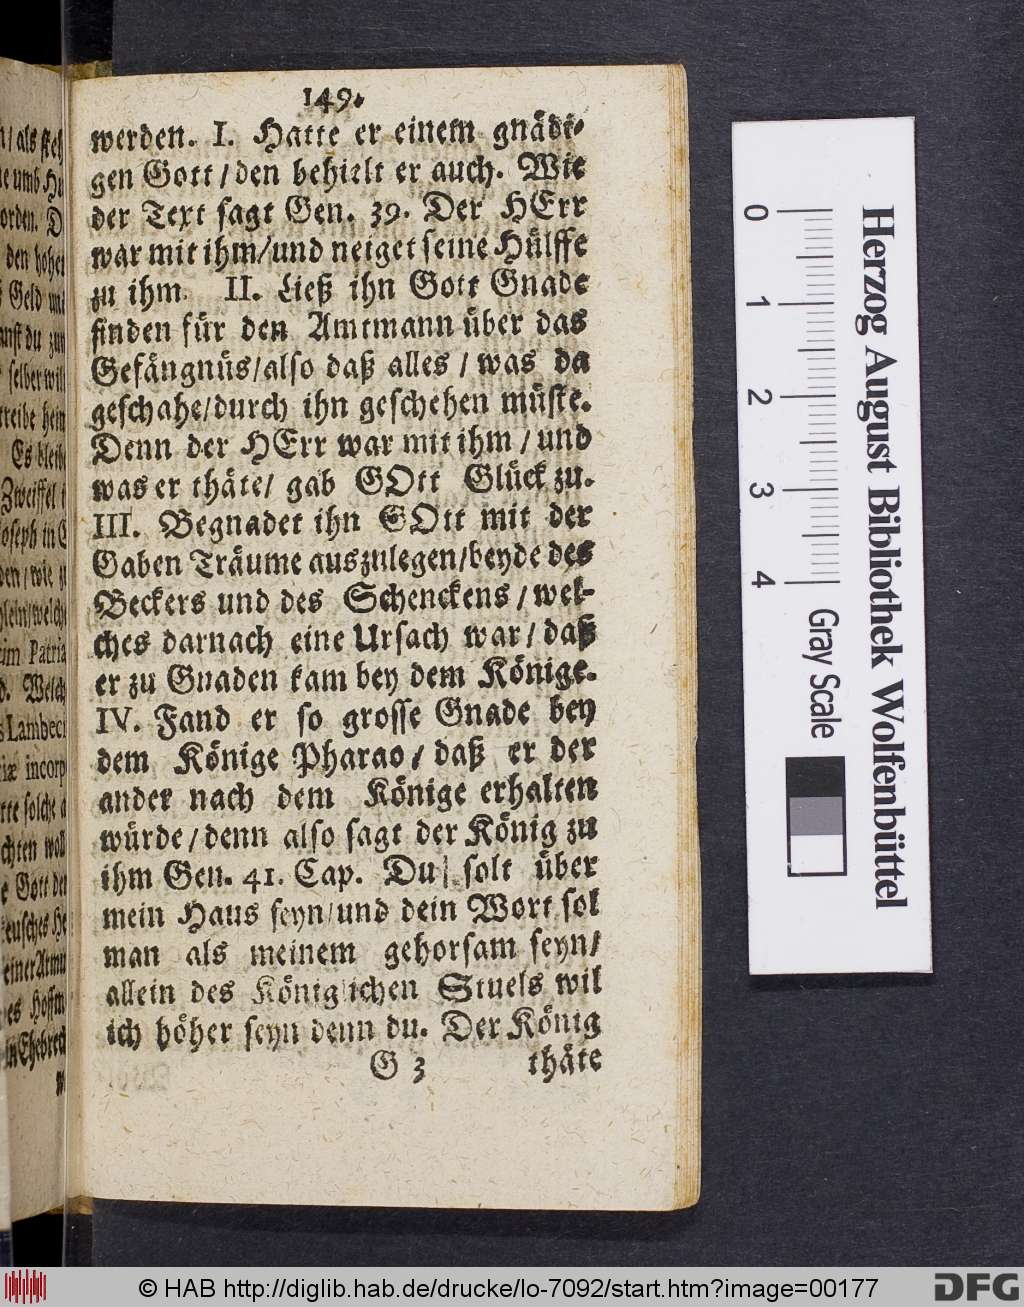 149.
werden. I. Hatte er einem gnädi-
gen Gott / den behielt er auch. Wie
der Text sagt Gen. 39. Der HErr
war mit ihm / und neiget seine Hülffe
zu ihm. II. Ließ ihn Gott Gnade
finden für den Amtmann über das
Gefängnüs / also daß alles / was da
geschahe / durch ihn geschehen müste.
Denn der HErr war mit ihm / und
was er thäte / gab GOtt Glück zu.
III. Begnadet ihn GOtt mit der
Gaben Träume auszulegen / beyde des
Beckers und des Schenckens / wel-
ches darnach eine Ursach war / daß
er zu Gnaden kam bey dem Könige.
IV. Fand er so grosse Gnade bey
dem Könige Pharao / daß er der
ander nach dem Könige erhalten
würde / denn also sagt der König zu
ihm Gen. 41. Cap. Du solt über
mein Haus seyn / und dein Wort sol
man als meinem gehorsam seyn /
allein des Königlichen Stuels wil
ich höher seyn denn du. Der König
G 3 thäte
n / als
orden. D
den hohen
Geld
selber
Es
Zweiffel
Joseph in
Patria
Welch
Lambeci
incorp
solche
Gott der
einer
es
0 1 2 3 4
Gray Scale
Herzog August Bibliothek Wolfenbüttel
© HAB http://diglib.hab.de/drucke/lo-7092/start.htm?image=00177
DFG